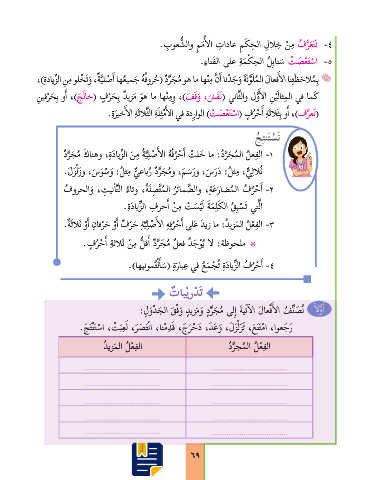 ٤- نَتَعَرَّفُ مِنْ خِلالِ الحِكَمِ عاداتِ الأُمَمِ والشُّعوبِ.
٥- اسْتَعْصَتْ سَنابِلُ الحِكْمَةِ على الفَناءِ.
بِمُلاحَظَتِنا الأَفْعالَ المُلَوَّنَةَ وَجَدْنا أَنَّ مِنْها ما هو مُجَرَّدٌ (حُروفُهُ جَميعُها أَصْلِيَّةٌ، وَتَخْلو مِنَ الزِّيادَةِ)،
كَما في المِثالَيْنِ الأَوَّلِ والثَّاني (نَقَشَ، وَقَفَ)، ومِنْها ما هوَ مَزيدٌ بِحَرْفٍ (خالَجَ)، أَو بِحَرْفَينِ
(تَعرَّفَ)، أَو بِثَلاثَةِ أَحْرُفٍ (اسْتَعْصَتْ) الوارِدة في الأَمْثِلَةِ الثَّلاثَةِ الأَخيرَةِ.
نَسْتَنْتِجُ
١- الفِعلُ المُجرَّدُ: ما خَلَتْ أَحْرُفُهُ الأَصْلِيَّةُ مِنَ الزِّيادَةِ، وهناكَ مُجَرَّدٌ
ثُلاثِيٌّ، مِثلُ: دَرَسَ، ورَسَمَ، ومُجَرَّدٌ رُباعِيٌّ مِثلُ: وَسْوَسَ، وزَلْزَلَ.
٢- أَحْرُفُ المُضارَعَةِ، والضَّمائرُ المُتَّصِلَةُ، وتاءُ التَّأنيثِ، والحروفُ
الَّتي تَسْبِقُ الكَلِمَةَ لَيْسَتْ مِنْ أَحرفِ الزِّيادَةِ.
٣- الفِعْلُ المَزيدُ: ما زيدَ على أَحْرُفِهِ الأَصْلِيَّةِ حَرْفٌ أَوْ حَرْفانِ أَوْ ثَلاثَةٌ.
* ملحوظة: لا يُوْجَدُ فعلٌ مُجَرَّدٌ أَقلُّ مِنْ ثَلاثةِ أَحْرُفٍ.
٤- أَحْرُفُ الزِّيادَةِ تُجْمَعُ في عِبارَةِ (سَأَلْتُمونيها).
تَدْريباتٌ
أَوَّلًا نُصَنِّفُ الأَفْعالَ الآتيةَ إِلى مُجَرَّدٍ وَمَزيدٍ وَفْقَ الجَدْوَلِ:
رَجَعوا، امْتَنَعَ، تَزَلْزَلَ، وَعَدَ، دَحْرَجَ، قَدِمْنا، انْتَصَرَ، لَعِبَتْ، اسْتَنْتَجَ.
الفِعْلُ المُجرَّدُ
الفِعْلُ المَزيدُ
٦٩